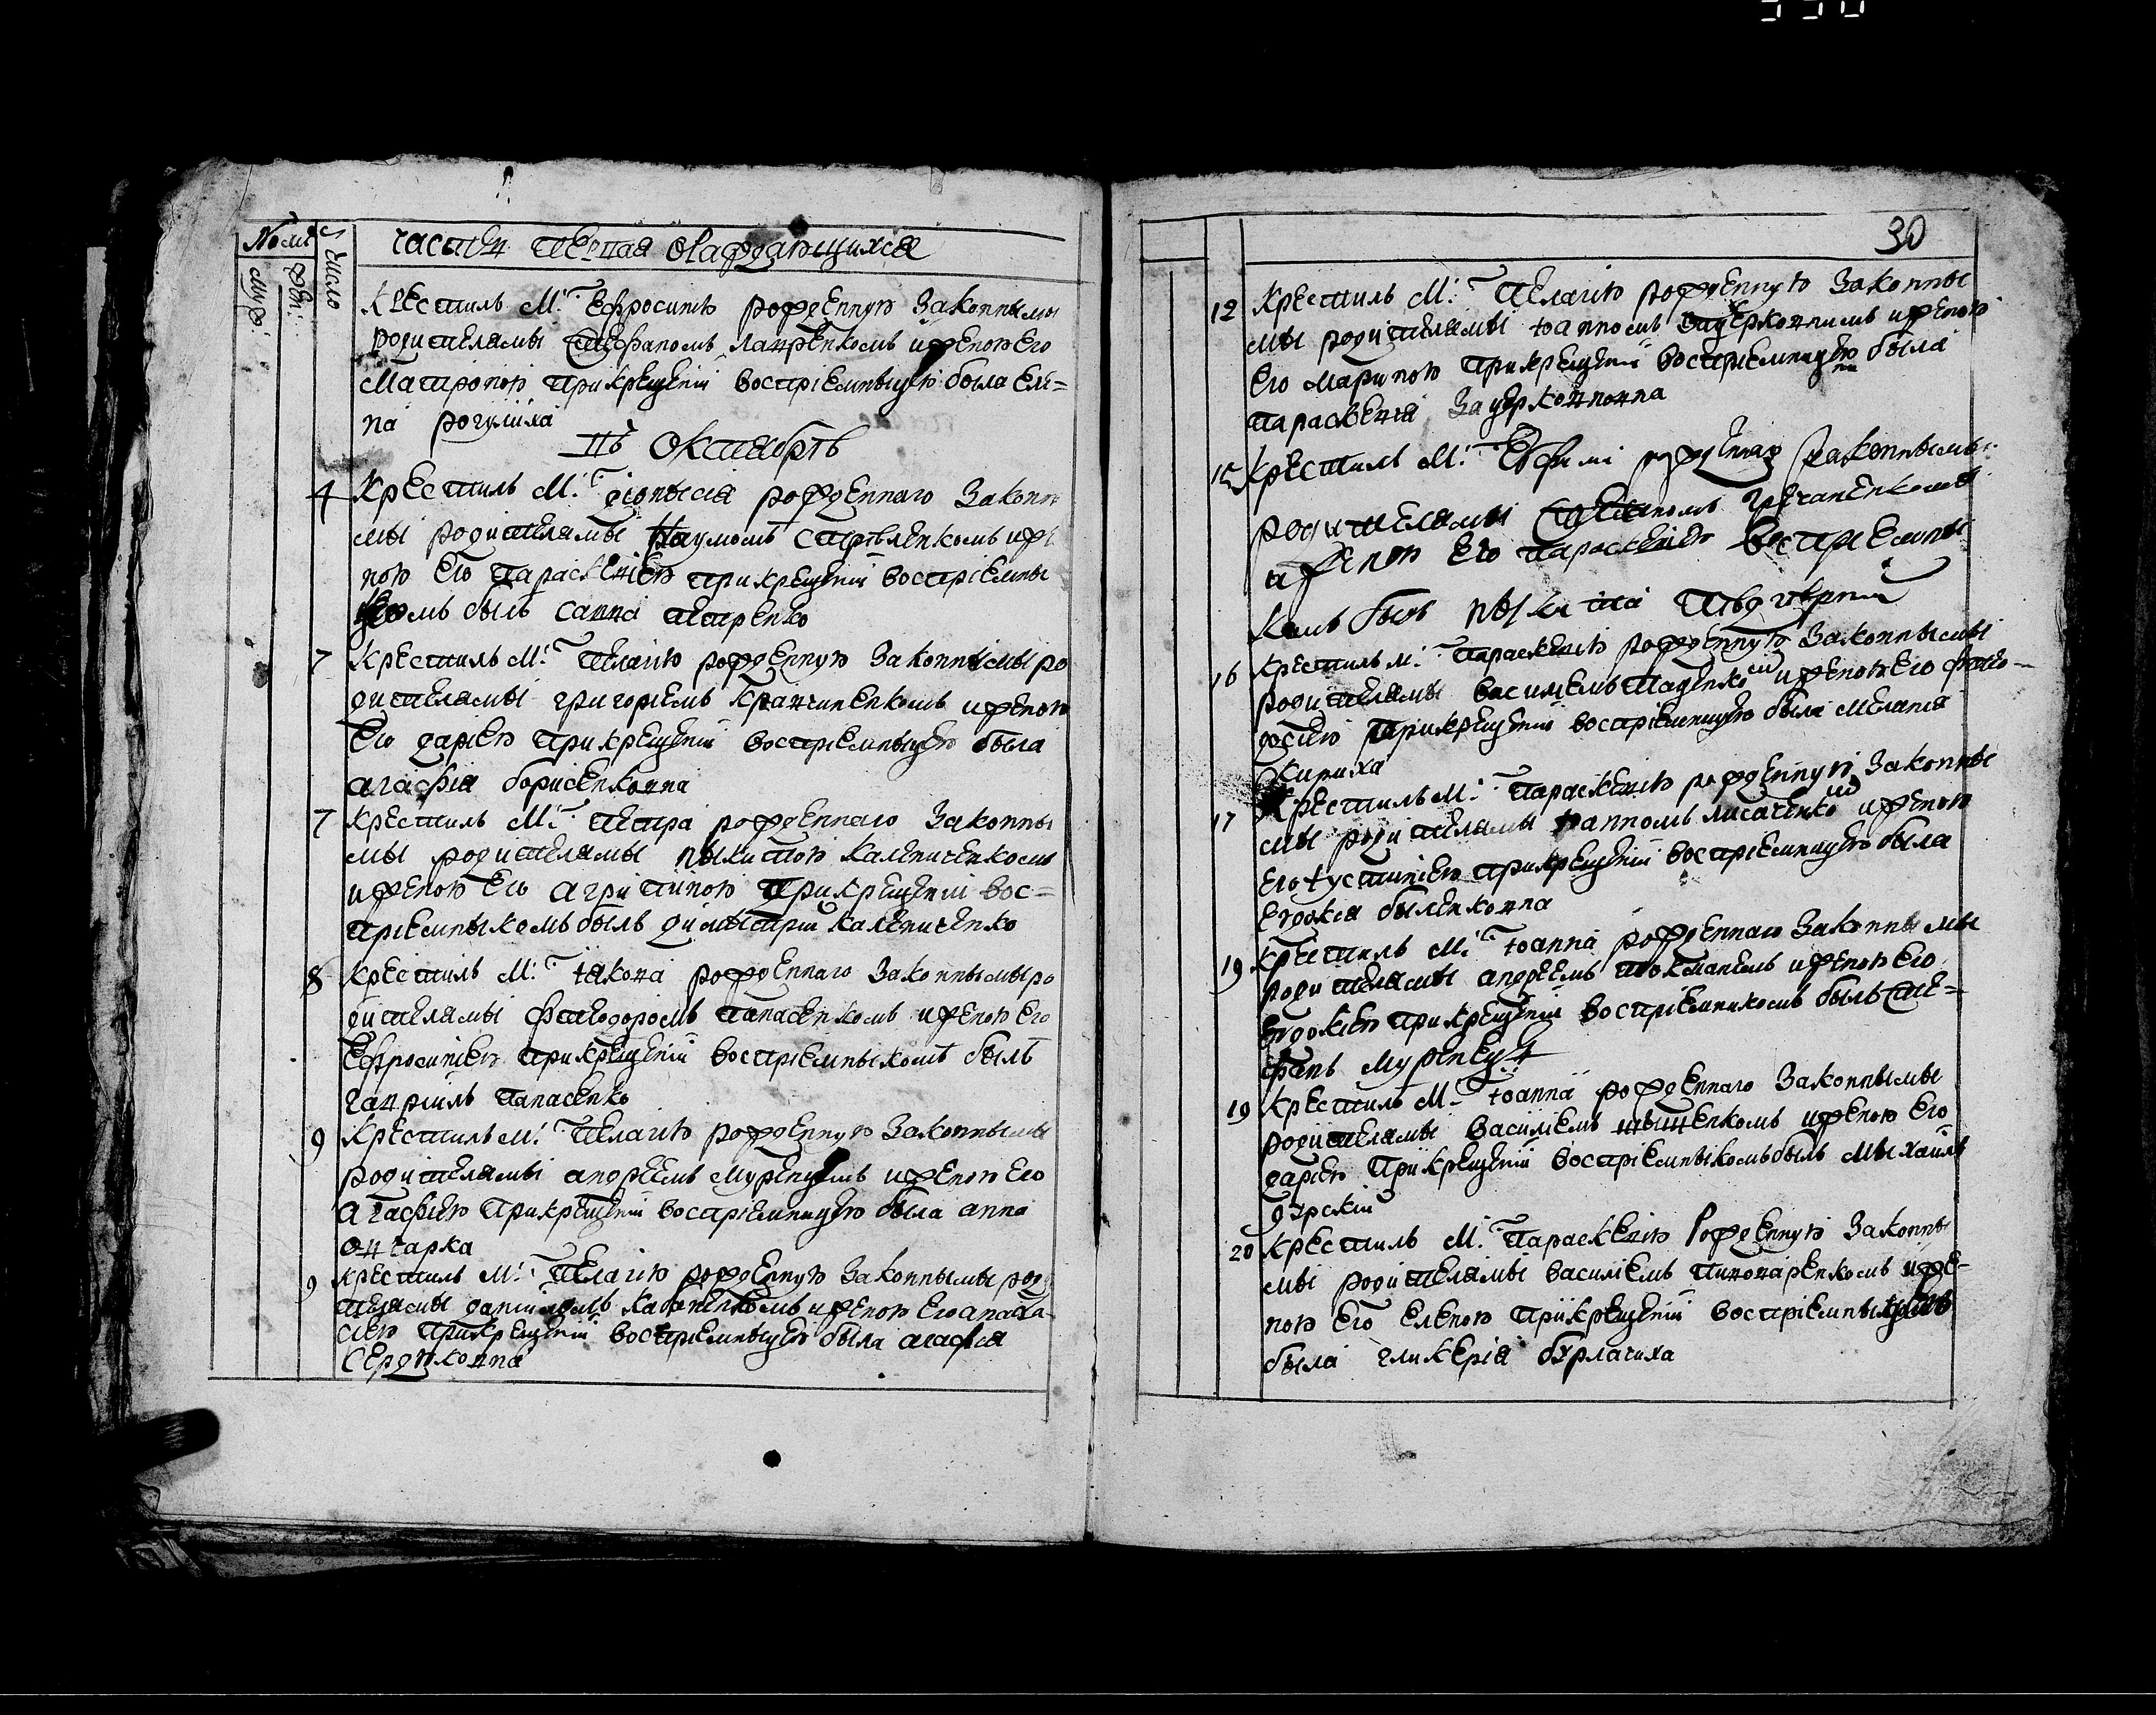 № муж: жен: Число
часть первая ораждающихся
крестилъ м: т: Ефросинію рожденную Законнымы
родителямы Стефаномъ Лавренкомъ и женою Его
Матроною при крещеніи воспріемныцею была Еле=
на рогулиха
въ Октябрѣ
4 крестилъ м: т: діонысія рожденнаго Законны
мы родителямы Наумомъ Стрѣленкомъ и же
ною Его параскевіею при крещеніи воспріемны
комъ былъ Савва петренко
7 крестилъ м: т: пелагію рожденную Законнымы ро
дителямы григоріемъ кравченкомъ и женою
Его даріею при крещеніи воспріемныцею была
агафія борисенковна
7 крестилъ м: т: петра рожденнаго Законны
мы родителямы Ныкитою каленыченкомъ
и женою Его агрипиною при крещеніи вос=
пріемныкомъ былъ димытрій каленыченко
8 крестилъ м: т: іакова рожденнаго Законнымы ро
дителямы феодоромъ панасенкомъ и женою Его
Ефросиніею при крещеніи воспріемныкомъ былъ
гавріилъ панасенко
9 крестилъ м: т: пелагію рожденную Законнымы
родителямы андреемъ муренцемъ и женою Его
агафіею при крещеніи воспріемницею была анна
овчарка
9 крестилъ м: т: пелагію рожденную Законнымы роди
телямы даніиломъ и женою Его анаста
сіею при крещеніи воспріемныцею была агафія
Сердюковна
30
12 крестилъ м: т: пелагію рожденную Законны
мы родителямы іоанномъ и женою
Его мариною при крещеніи воспріемницею была
параскевія
15 крестилъ м: т: Евфимі рожденна Законнымы
родителямы Стефаномъ гречаненкомъ
и женою Его параскевіею воспріемны
комъ былъ Ныкита
16 крестилъ м: т: параскевію рожденную Законнымы
родителямы василіемъ паденкомъ и женою Его фео-
досіею при крещеніи воспріемницею была меланія
кириха
17 крестилъ м: т: параскевію рожденную Законны
мы родителямы іоанномъ лисаченкомъ и женою
Его іустиніею при крещеніи воспріемницею была
Евдокія быленковна
19 крестилъ м: т: іоанна рожденнаго Законнымы
родителямы андреемъ и женою Его
Евдокіею при крещеніи воспріемникомъ былъ Сте=
фанъ муренецъ
19 крестилъ м: т: іоанна рожденнаго Законнымы
родителямы Василіемъ и женою Его
даріею при крещеніи воспріемныкомъ былъ мыхаилъ

20 крестилъ м: т: параскевію рожденную Законны
мы родителямы василіемъ пивоваренкомъ и же-
ною Его Еленою при крещеніи воспріемныцею
была гликерія бурлачиха